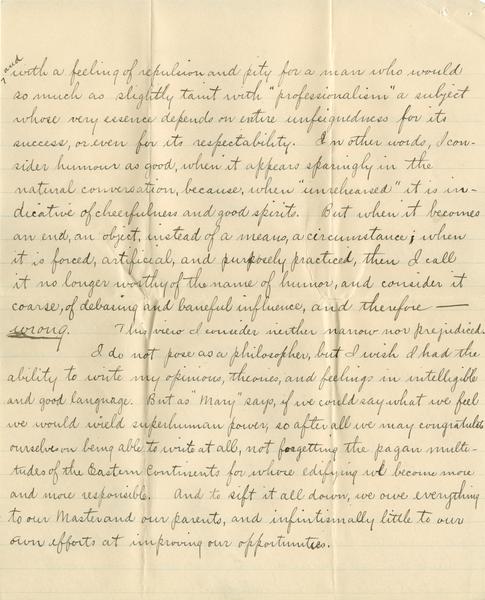 and
with a feeling of repulsion and pity for a man who would
so much as slightly taint with "professionalism" a subject
whose very essence depends on entire unfeignedness for its
success, or even for its respectability. In other words, I con-
sider humour as good, when it appears sparingly in the
natural conversation, because, when "unrehearsed" it is in-
dicative of cheerfulness and good spirits. But when it becomes
an end, an object, instead of a means, a circumstance; when
it is forced, artificial, and purposely practiced, then I call
it no longer worthy of the name of humor, and consider it
coarse, of debasing and baneful influence, and therefore —
wrong. This view I consider neither narrow nor prejudiced.
I do not pose as a philosopher, but I wish I had the
ability to write my opinions, theories, and feelings in intelligible
and good language. But as "Mary" says, if we could say what we feel
we would wield superhuman power, so after all we may congratulate
ourselves on being able to write at all, not forgetting the pagan multi-
tudes of the Eastern Continents for whose edifying we become more
and more responsible. And to sift it all down, we owe everything
to our Master and our parents, and infintismally little to our
own efforts at improving our opportunities.